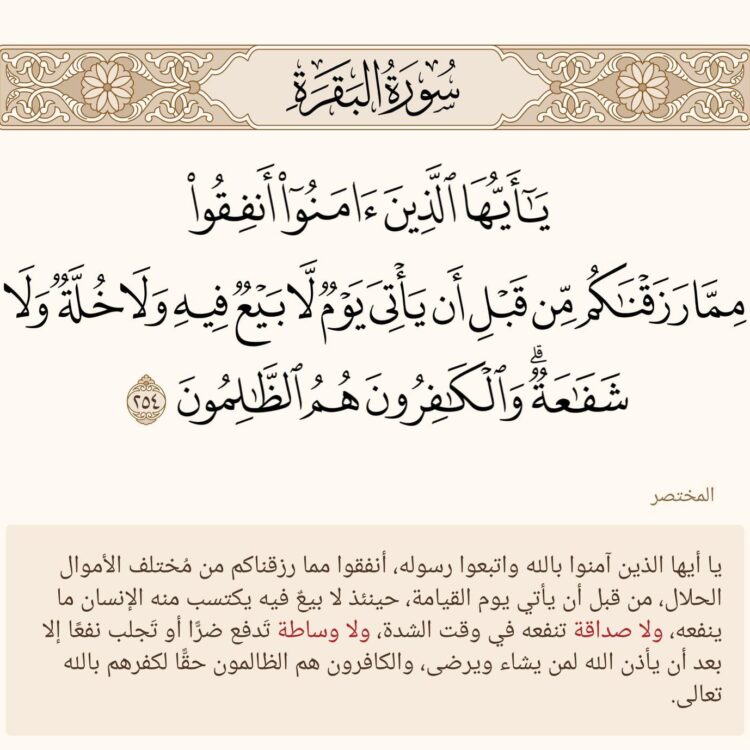 سُورَةُ البَقَرَةِ
يَـٰٓأَيُّهَا ٱلَّذِينَ ءَامَنُوٓا۟ أَنفِقُوا۟
مِمَّا رَزَقْنَـٰكُم مِّن قَبْلِ أَن يَأْتِىَ يَوْمٌ لَّا بَيْعٌ فِيهِ وَلَا خُلَّةٌ وَلَا
شَفَـٰعَةٌ ۗ وَٱلْكَـٰفِرُونَ هُمُ ٱلظَّـٰلِمُونَ ٢٥٤
المختصر
يا أيها الذين آمنوا بالله واتبعوا رسوله، أنفقوا مما رزقناكم من مُختلف الأموال
الحلال، من قبل أن يأتي يوم القيامة، حينئذ لا بيعٌ فيه يكتسب منه الإنسان ما
ينفعه، ولا صداقة تنفعه في وقت الشدة، ولا وساطة تَدفع ضرًا أو تَجلب نفعًا إلا
بعد أن يأذن الله لمن يشاء ويرضى، والكافرون هم الظالمون حقًّا لكفرهم بالله
تعالى.